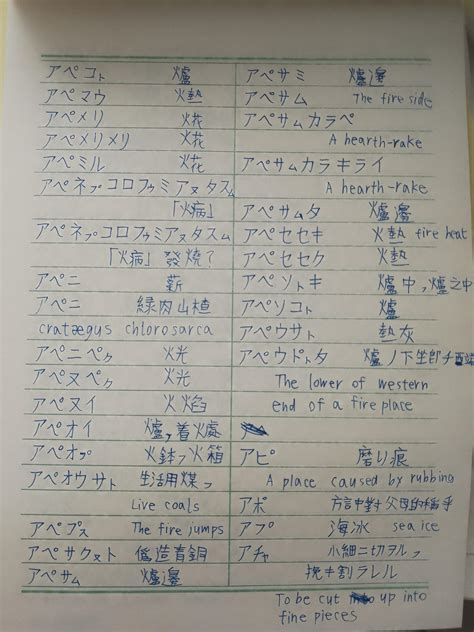 アペコㇳ 爐
アペマウ 火熱
アペメリ 火花
アペメリメリ 火花
アペミル 火花
アペネㇷ゚コロフㇺミアㇴタスㇺ
「火病」
アペネㇷ゚コロフㇺミアㇴタスㇺ
「火病」發燒?
アペニ 薪
アペニ 綠肉山楂
crataegus chlorosarca
アペニペㇰ 火光
アペヌペㇰ 火光
アペヌイ 火焰
アペオイ 爐,着火處
アペオㇷ゚ 火鉢,火箱
アペオウサㇳ 生活用煤,
Live coals
アペㇷ゚ス The fire jumps
アペサクㇲㇳ 僞造青銅
アペサㇺ 爐邊
アペサミ 爐邊
アペサム The fire side
アペサㇺカラペ
A hearth-rake
アペサㇺカラキライ
A hearth-rake
アペサㇺタ 爐邊
アペセセキ 火熱 fire heat
アペセセㇰ 火熱
アペソㇳキ 爐中,爐之中
アペソコㇳ 爐
アペウサㇳ 熱灰
アペウㇳ゚ㇳタ 爐ノ下坐即チ西端
The lower of western
end of a fire place
アピ 磨り痕
A place caused by rubbing
アポ 方言中對父母的稱乎
アプ 海冰 sea ice
アチャ 小細ニ切ヲル,
挽キ割ラレル
To be cut up into
fine pieces